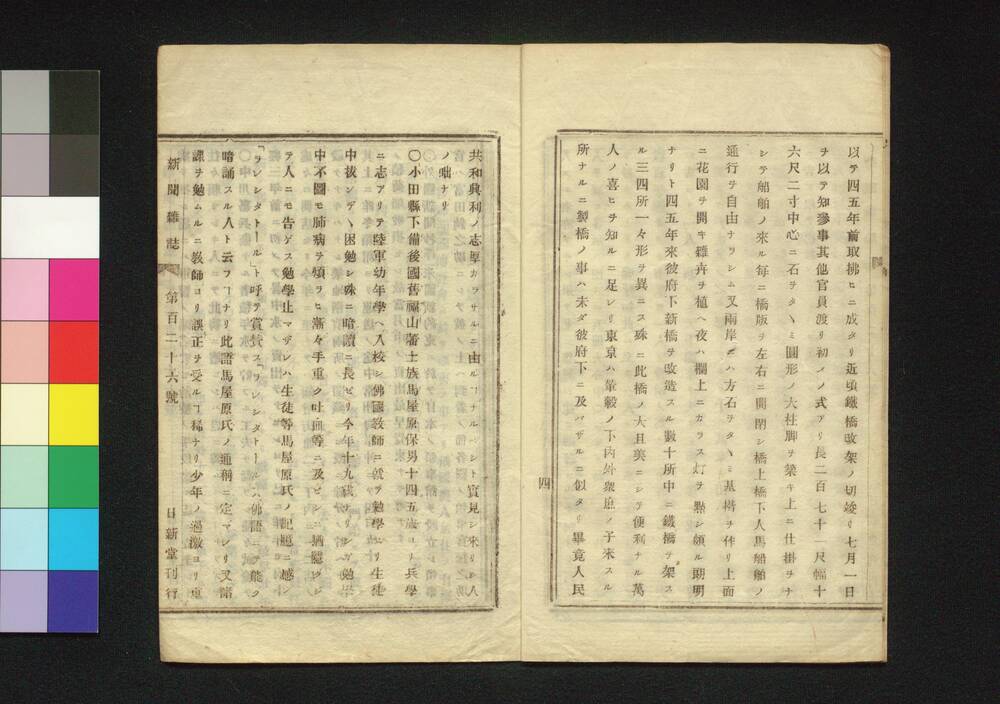 以テ四五年前取拂ヒニ成タリ近頃鐵橋改架ノ功竣リ七月一日
ヲ以テ知參事其他官員渡リ初メノ式アリ長二百七十一尺幅十
六尺二寸中心ニ石ヲタヽミ圓形ノ大柱脚ヲ築キ上ニ仕掛ヲナ
シテ船舶ノ來ル每ニ橋版ヲ左右ニ開閉シ橋上橋下人馬船舶ノ
通行ヲ自由ナラシム又兩岸ニハ方石ヲタヽミ基礎ヲ作リ上面
ニ花園ヲ開キ雜卉ヲ植ヘ夜ハ欄上ニカラス灯ヲ點シ頗ル朗明
ナリト四五年來彼府下新橋ヲ改造スル數十所中ニ鐵橋ヲ架ス
ル三四所一々形ヲ異ニス殊ニ此橋ノ大且美ニシテ便利ナル萬
人ノ喜ヒヲ知ルニ足レリ東京ハ輦轂ノ下內外衆庶ノ子來スル
所ナルニ製橋ノ事ハ未ダ彼府下ニ及バザルニ似タリ畢竟人民
四
共和興利ノ志厚カラサルニ由ルヿナルベシト實見シ來リシ人
ノ咄ナリ
〇小田縣下備後國舊福山藩士族馬屋原保男十四五歲ヨリ兵學
ニ志アリテ陸軍幼年學ヘ入校シ佛國敎師ニ就テ勉學シ生徒
中拔ンデヽ困勉シ殊ニ暗讀ニ長ゼリ今年十九歲ナリシガ勉學
中不圖モ肺病ヲ煩ヒ漸々手重ク吐血等ニ及ビシニ猶隱シ
テ人ニモ告ゲス勉學止マザレハ生徒等馬屋原氏ノ記臆ニ感シ
「ヲレシタトール」ト呼テ賞賛ス「ヲレシタトール」ハ佛語ニテ能ク
暗誦スル人ト云フヿナリ此語馬屋原氏ノ通稱ニ定マレリ又諸
課ヲ勉ムルニ敎師ヨリ誤正ヲ受ルヿ稀ナリ少年ノ過激ヨリ重
新聞雜誌 第百二十六號 日新堂刊行